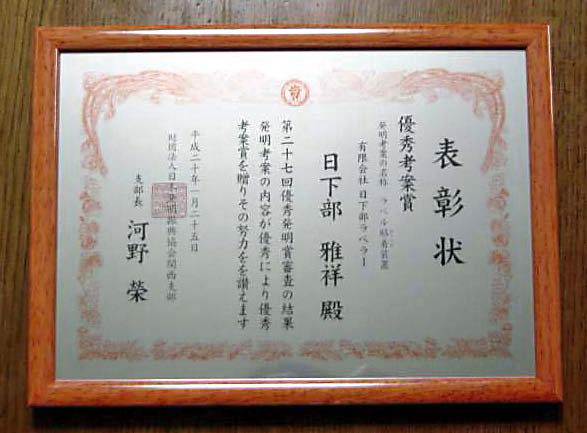 表彰状
優秀考案賞
発明考案の名称 ラベル貼着装置
有限会社 日下部ラベラー
日下部 雅祥 殿
第二十七回優秀発明賞審査の結果
発明考案の内容が優秀により優秀
考案賞を贈りその努力をを讃えます
平成二十年一月二十五日
財団法人日本発明振興協会関西支部
支部長 河野 榮